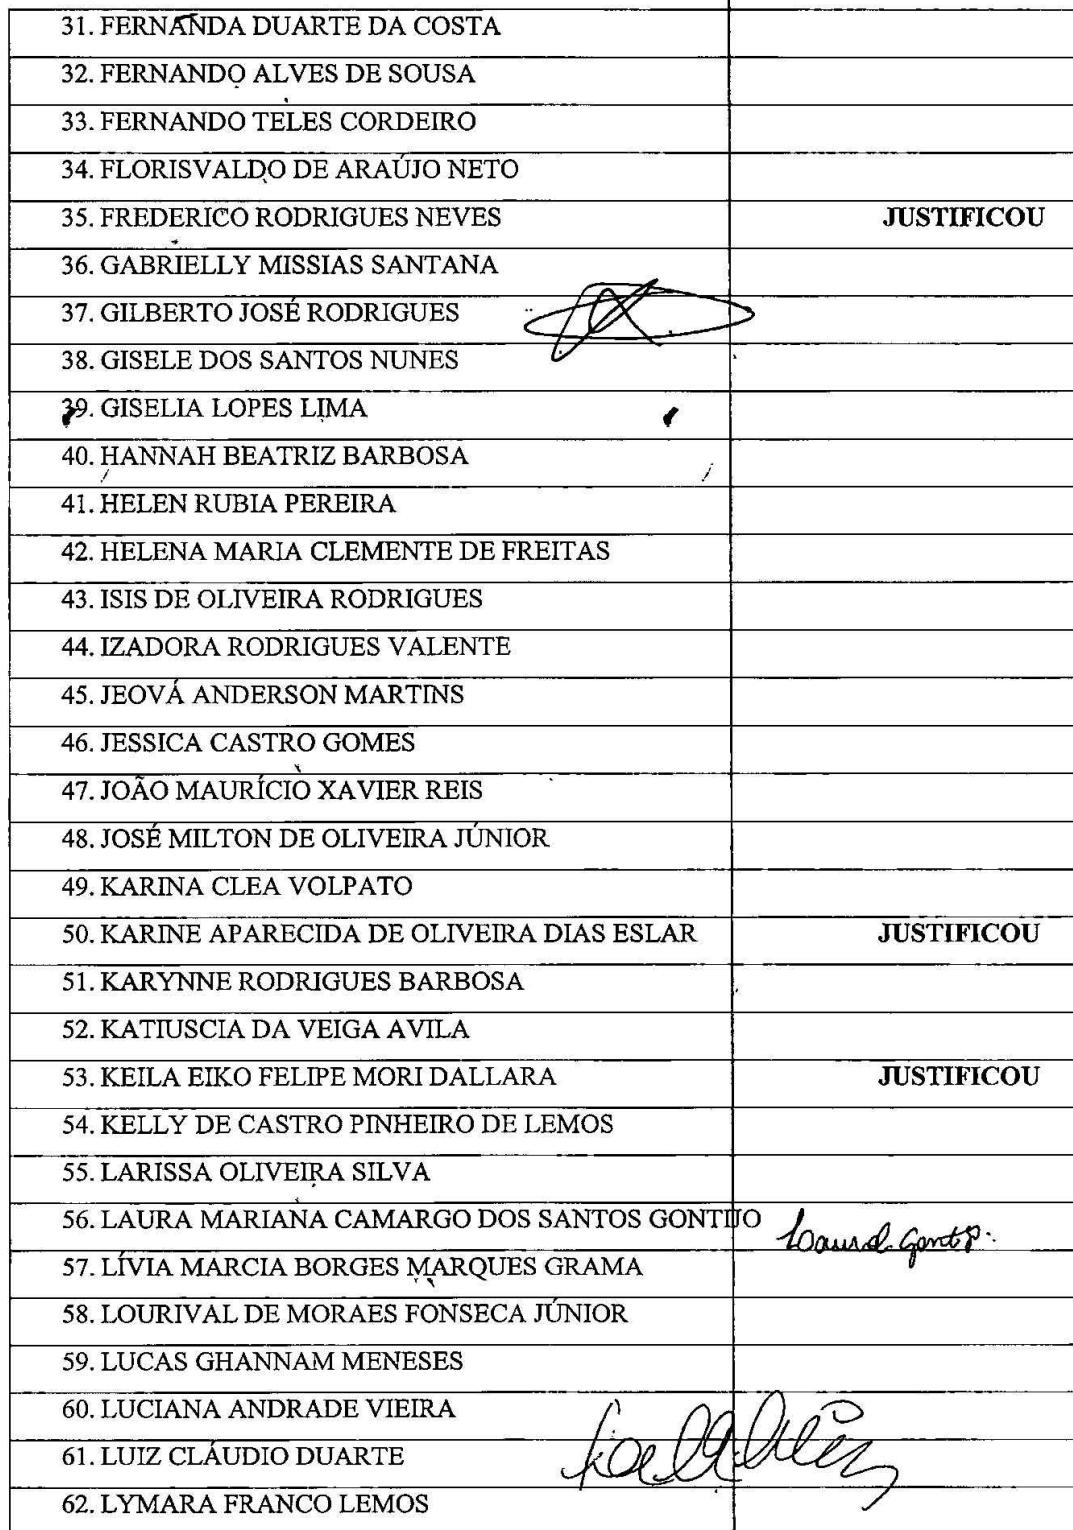 31. FERNANDA DUARTE DA COSTA
32. FERNANDO ALVES DE SOUSA
33. FERNANDO TELES CORDEIRO
34. FLORISVALDO DE ARAÚJO NETO
35. FREDERICO RODRIGUES NEVES JUSTIFICOU
36. GABRIELLY MISSIAS SANTANA
37. GILBERTO JOSÉ RODRIGUES
38. GISELE DOS SANTOS NUNES
39. GISELIA LOPES LIMA
40. HANNAH BEATRIZ BARBOSA
41. HELEN RUBIA PEREIRA
42. HELENA MARIA CLEMENTE DE FREITAS
43. ISIS DE OLIVEIRA RODRIGUES
44. IZADORA RODRIGUES VALENTE
45. JEOVÁ ANDERSON MARTINS
46. JESSICA CASTRO GOMES
47. JOÃO MAURÍCIO XAVIER REIS
48. JOSÉ MILTON DE OLIVEIRA JÚNIOR
49. KARINA CLEA VOLPATO
50. KARINE APARECIDA DE OLIVEIRA DIAS ESLAR JUSTIFICOU
51. KARYNNE RODRIGUES BARBOSA
52. KATIUSCIA DA VEIGA AVILA
53. KEILA EIKO FELIPE MORI DALLARA JUSTIFICOU
54. KELLY DE CASTRO PINHEIRO DE LEMOS
55. LARISSA OLIVEIRA SILVA
56. LAURA MARIANA CAMARGO DOS SANTOS GONTIJO
57. LÍVIA MARCIA BORGES MARQUES GRAMA
58. LOURIVAL DE MORAES FONSECA JÚNIOR
59. LUCAS GHANNAM MENESES
60. LUCIANA ANDRADE VIEIRA
61. LUIZ CLÁUDIO DUARTE
62. LYMARA FRANCO LEMOS